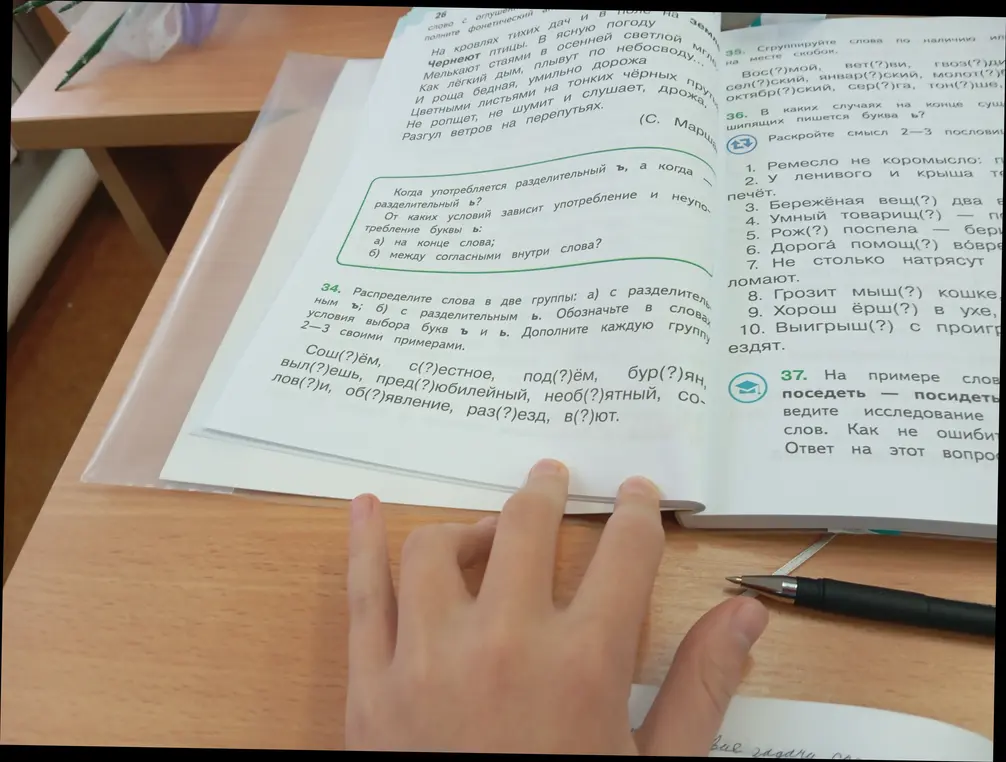 26
слово с оглуше
полните фонетический
На кровлях тихих дач и в поле на земле
Чернеют птицы. В ясную погоду
Мелькают стаями в осенней светлой мгле
Как лёгкий дым, плывут по небосводу...
И роща бедная, умильно дорожа
Цветными листьями на тонких чёрных прут
Не ропщет, не шумит и слушает, дрожа,
Разгул ветров на перепутьях.
(С. Марша
Когда употребляется разделительный ъ, а когда —
разделительный ь?
От каких условий зависит употребление и неупо-
требление буквы ь:
а) на конце слова;
б) между согласными внутри слова?
34. Распределите слова в две группы: а) с разделитель
ным ъ; б) с разделительным ь. Обозначьте в словах
условия выбора букв ъ и ь. Дополните каждую группу
2—3 своими примерами.
Сош(?)ём, с(?)естное, под(?)ём, бур(?)ян,
выл(?)ешь, пред(?)юбилейный, необ(?)ятный, со-
лов(?)и, об(?)явление, раз(?)езд, в(?)ют.
35. Сгруппируйте слова по наличию ил
на месте скобок.
Вос(?)мой, вет(?)ви, гвоз(?)ди
сел(?)ский, январ(?)ский, молот(?)
октябр(?)ский, сер(?)га, тон(?)ше,
36. В каких случаях на конце сущ
шипящих пишется буква ь?
Раскройте смысл 2—3 пословиц
1. Ремесло не коромысло: п
2. У ленивого и крыша те
печёт.
3. Бережёная вещ(?) два в
4. Умный товарищ(?) — по
5. Рож(?) поспела — бери
6. Дорога́ помощ(?) во́вре
7. Не столько натрясут
ломают.
8. Грозит мыш(?) кошке
9. Хорош ёрш(?) в ухе,
10. Выигрыш(?) с проигр
ездят.
37. На примере слов
поседеть — посидеть
ведите исследование
слов. Как не ошибит
Ответ на этот вопро
задачи